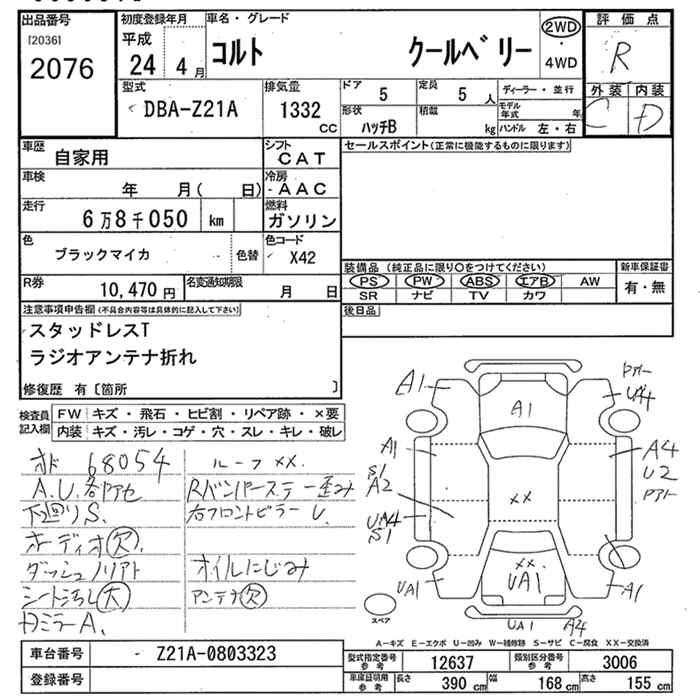 出品番号
[2036]
2076
初度登録年月
平成
24 4 月
車名・グレード
コルト クールベリー
2WD
・
4WD
評価点
R
外装 内装
C D
型式
DBA-Z21A
排気量
1332
CC
ドア
5
定員
5 人
形状
ハッチB
積載
kg
ディーラー・並行
モデル年式 年
ハンドル 左・右
車歴
自家用
シフト
CAT
車検
年 月( 日)
冷房
AAC
走行
6万8千050 km
燃料
ガソリン
色
ブラックマイカ
色替
色コード
X42
R券
10,470 円
名変通知期限
月 日
セールスポイント(正常に機能するものに限ります)
装備品 (純正品に限り○をつけてください)
PS PW ABS エアB AW
SR ナビ TV カワ
新車保証書
有・無
後日品
注意事項申告欄(不具合内容等は具体的に記入して下さい)
スタッドレスT
ラジオアンテナ折れ
修復歴 有〔箇所 〕
検査員
記入欄
FW キズ・飛石・ヒビ割・リペア跡・×要
内装 キズ・汚レ・コゲ・穴・スレ・キレ・破レ
オド 68054
A.U.各部アセ
下回りS.
オーディオ欠.
ダッシュノリアト
シート汚レ大
ルーフ××.
Rバンパーステー歪み
右フロントピラーU.
オイルにじみ
アンテナ欠
A1
A1
UA4
A1
S1
A2
S1
A4
U2
××
××
UA1
UA1
A1
UA1
A4
スペア
A-キズ E-エクボ U-凹み W-補修跡 S-サビ C-腐食 XX-交換済
車台番号
Z21A-0803323
登録番号
型式指定番号
参考
12637
類別区分番号
参考
3006
車庫証明用
参考
長さ
390 cm
幅
168 cm
高さ
155 cm